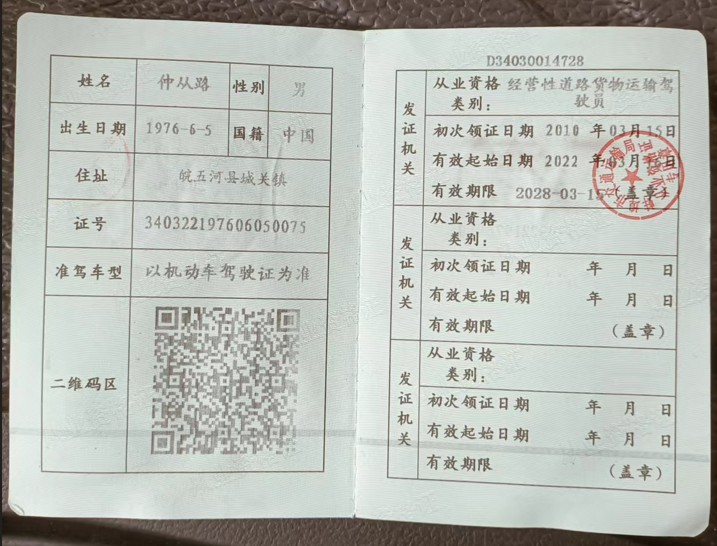 姓名 仲从路 性别 男
出生日期 1976-6-5 国籍 中国
住址 皖五河县城关镇
证号 340322197606050075
准驾车型 以机动车驾驶证为准
二维码区
D34030014728
发证机关
从业资格类别: 经营性道路货物运输驾驶员
初次领证日期 2010 年 03月 15日
有效起始日期 2022 年 03月 15日
有效期限 2028-03-15 (盖章)
发证机关
从业资格类别:
初次领证日期 年 月 日
有效起始日期 年 月 日
有效期限 (盖章)
发证机关
从业资格类别:
初次领证日期 年 月 日
有效起始日期 年 月 日
有效期限 (盖章)